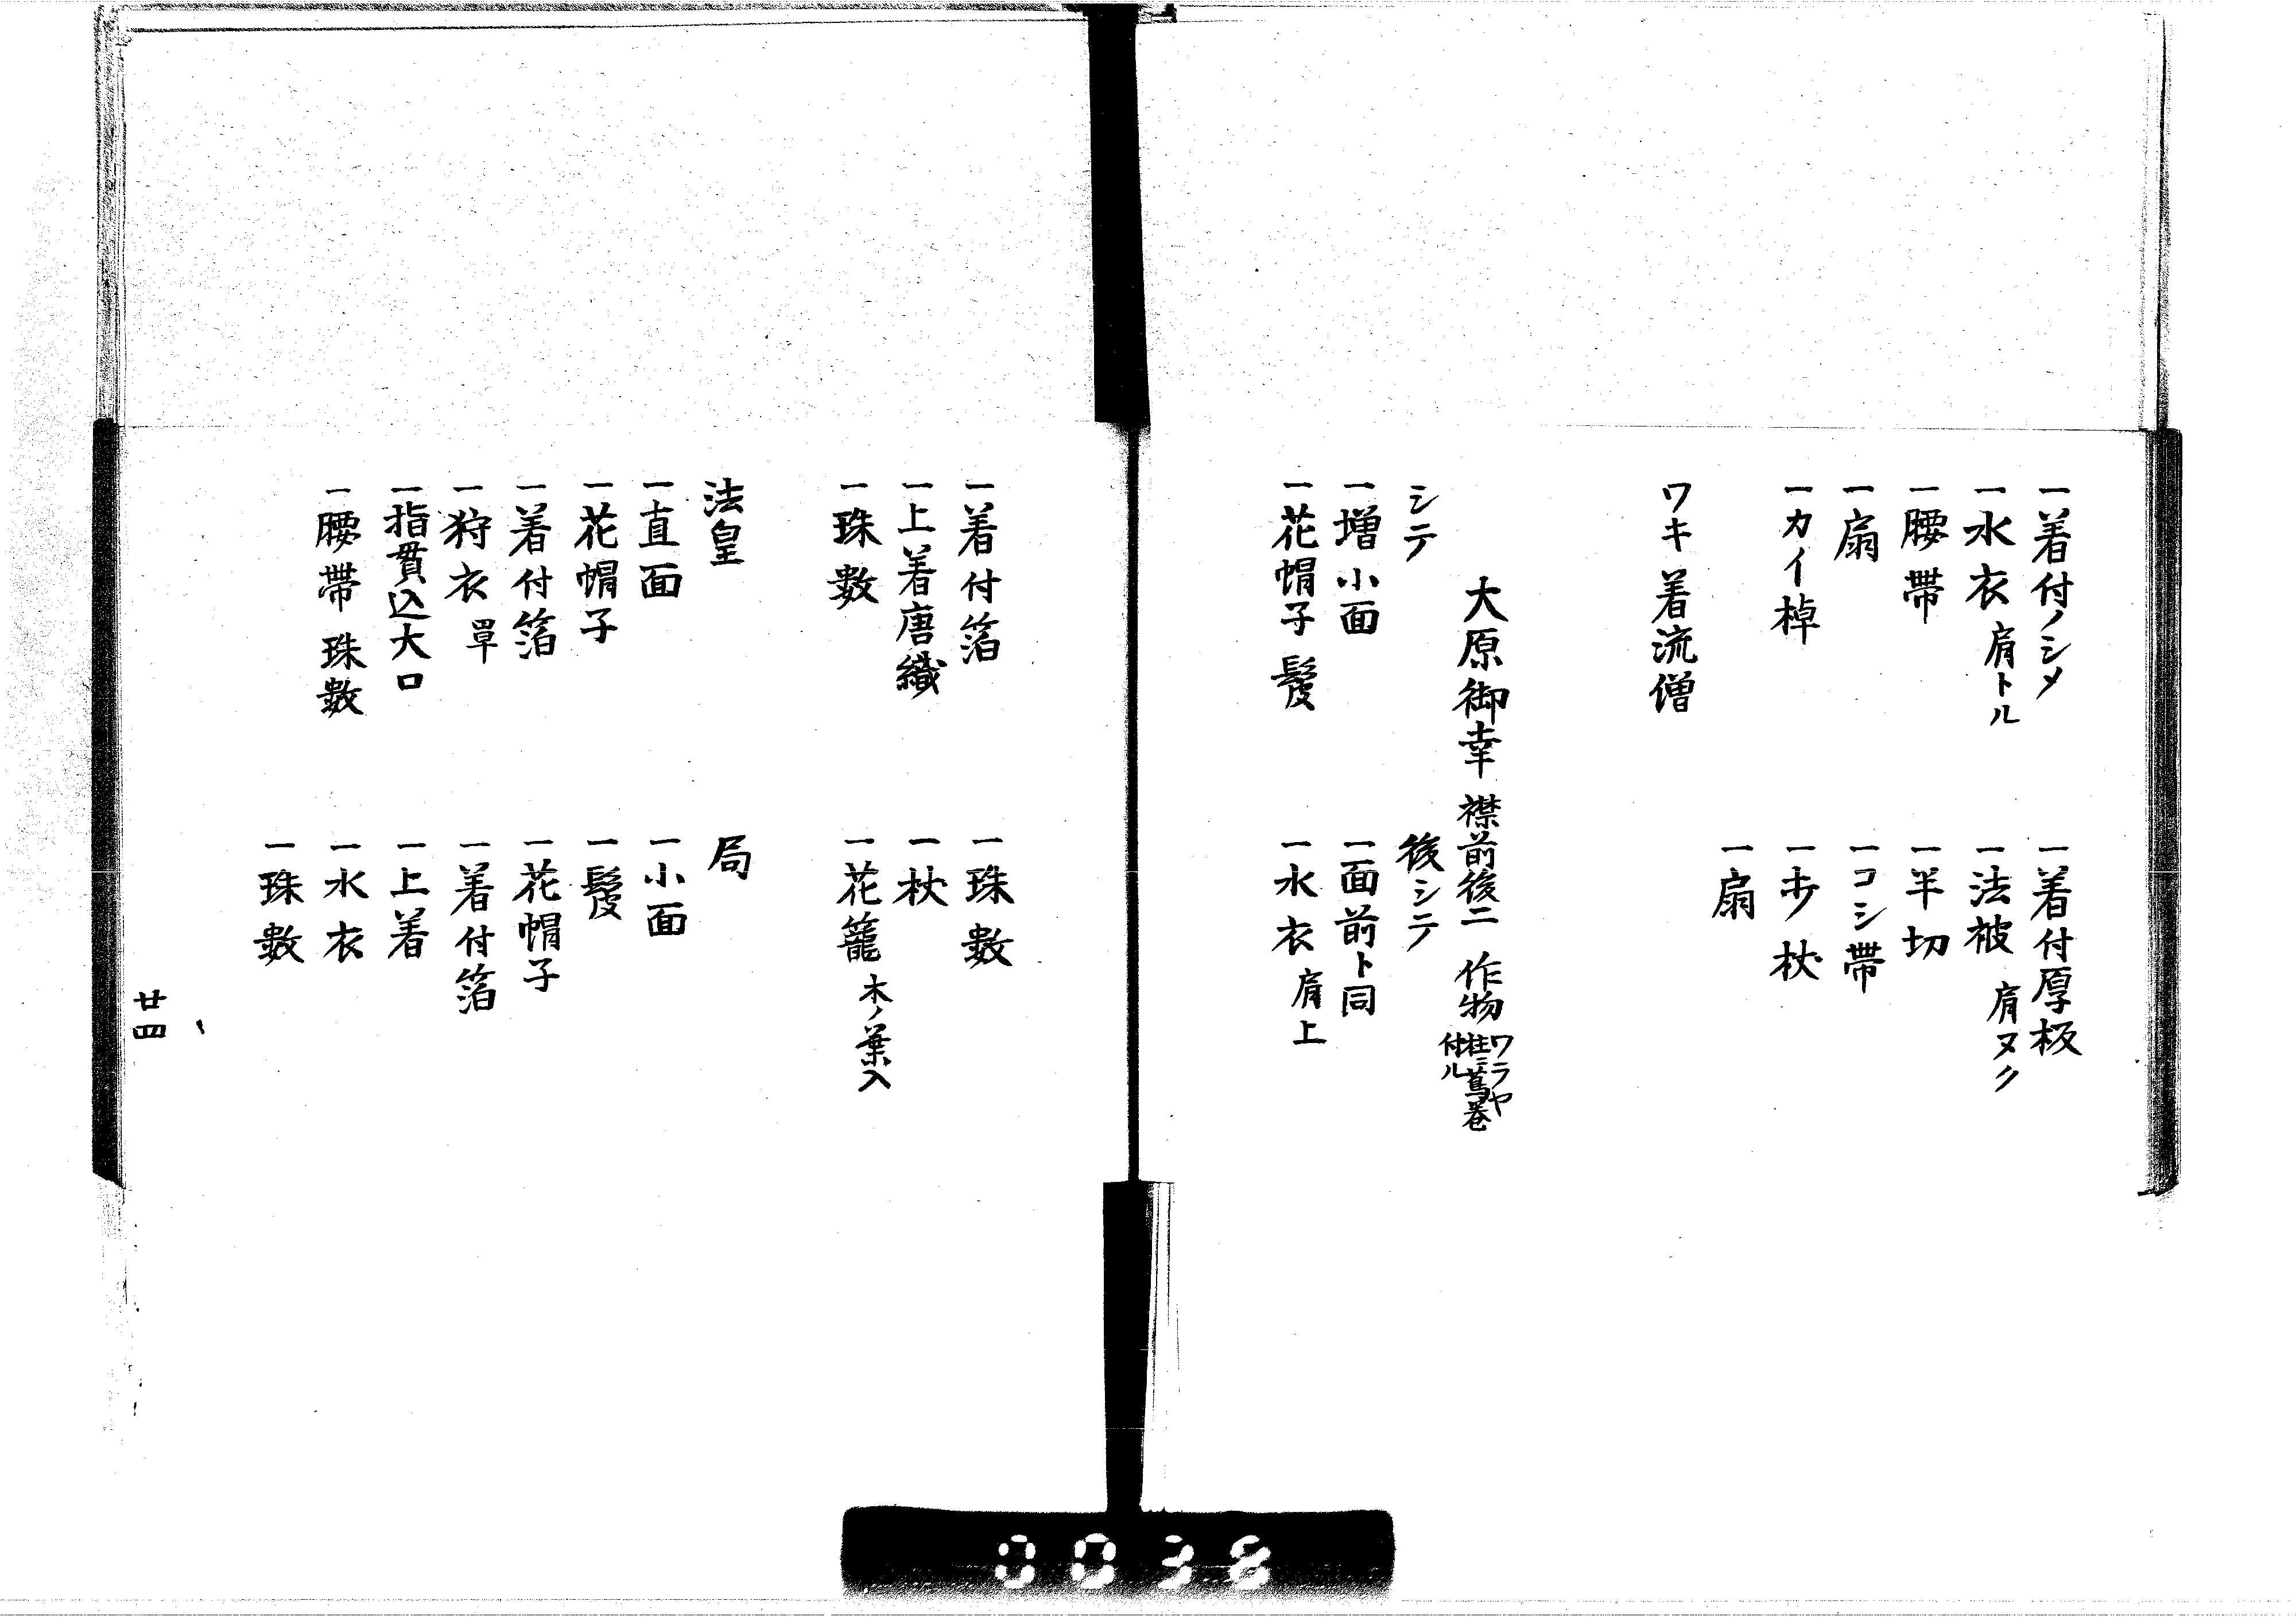 一着付ノシメ
一水衣 肩トル
一腰帯
一扇
一カイ棹
一着付厚板
一法被 肩ヌク
一半切
一コシ帯
一歩杖
一扇
ワキ 着流僧
大原御幸 襟前後二 作物 ワラヤ
柱ニ蔦巻
付ル
シテ
一増小面
一花帽子 鬘
後シテ
一面前ト同
一水衣 肩上
一着付箔
一上着唐織
一珠数
一珠数
一杖
一花籠 木ノ葉入
法皇
一直面
一花帽子
一着付箔
一狩衣 単
一指貫込大口
一腰帯 珠数
局
一小面
一鬘
一花帽子
一着付箔
一上着
一水衣
一珠数
廿四
0038